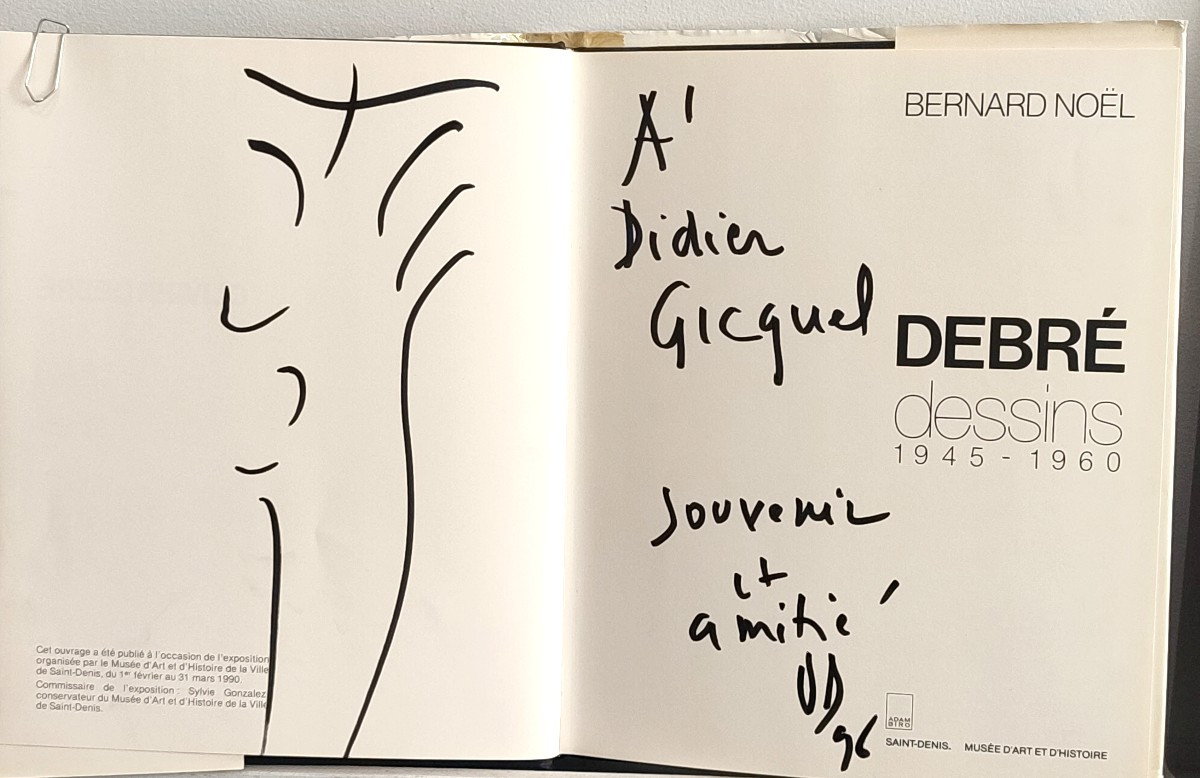 Cet ouvrage a été publié à l'occasion de l'exposition
organisée par le Musée d'Art et d'Histoire de la Ville
de Saint-Denis, du 1er février au 31 mars 1990.
Commissaire de l'exposition : Sylvie Gonzalez,
conservateur du Musée d'Art et d'Histoire de la Ville
de Saint-Denis.
BERNARD NOËL
À
Didier
Gicquel
DEBRÉ
dessins
1945-1960
Souvenir
et
amitié
OD
96
ADAM
BIRO
SAINT-DENIS. MUSÉE D'ART ET D'HISTOIRE